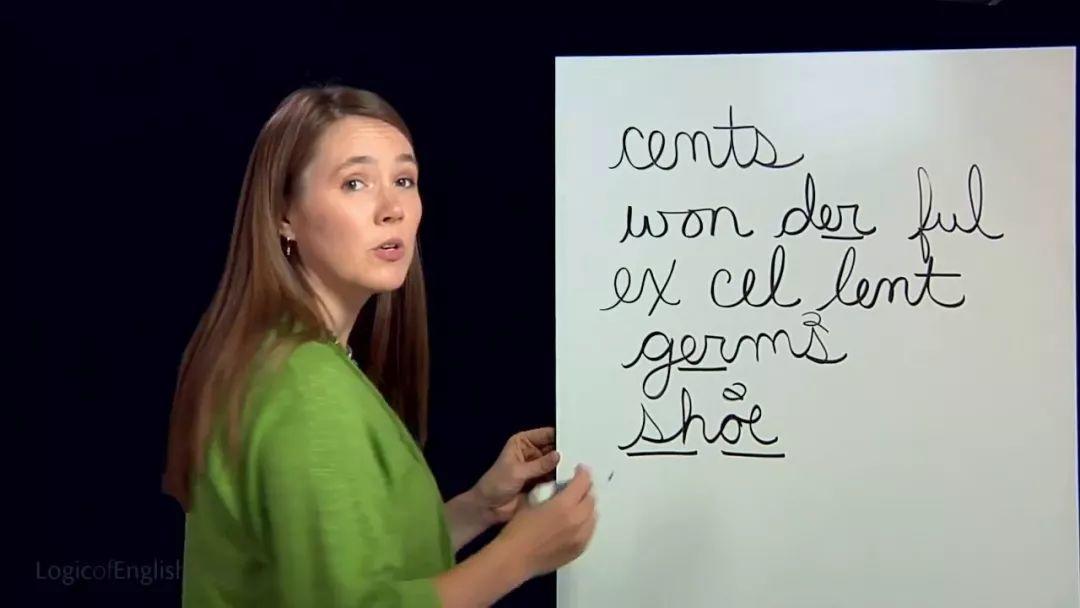 cents
won der ful
ex cel lent
germs 2
shoe 2
LogicofEnglish